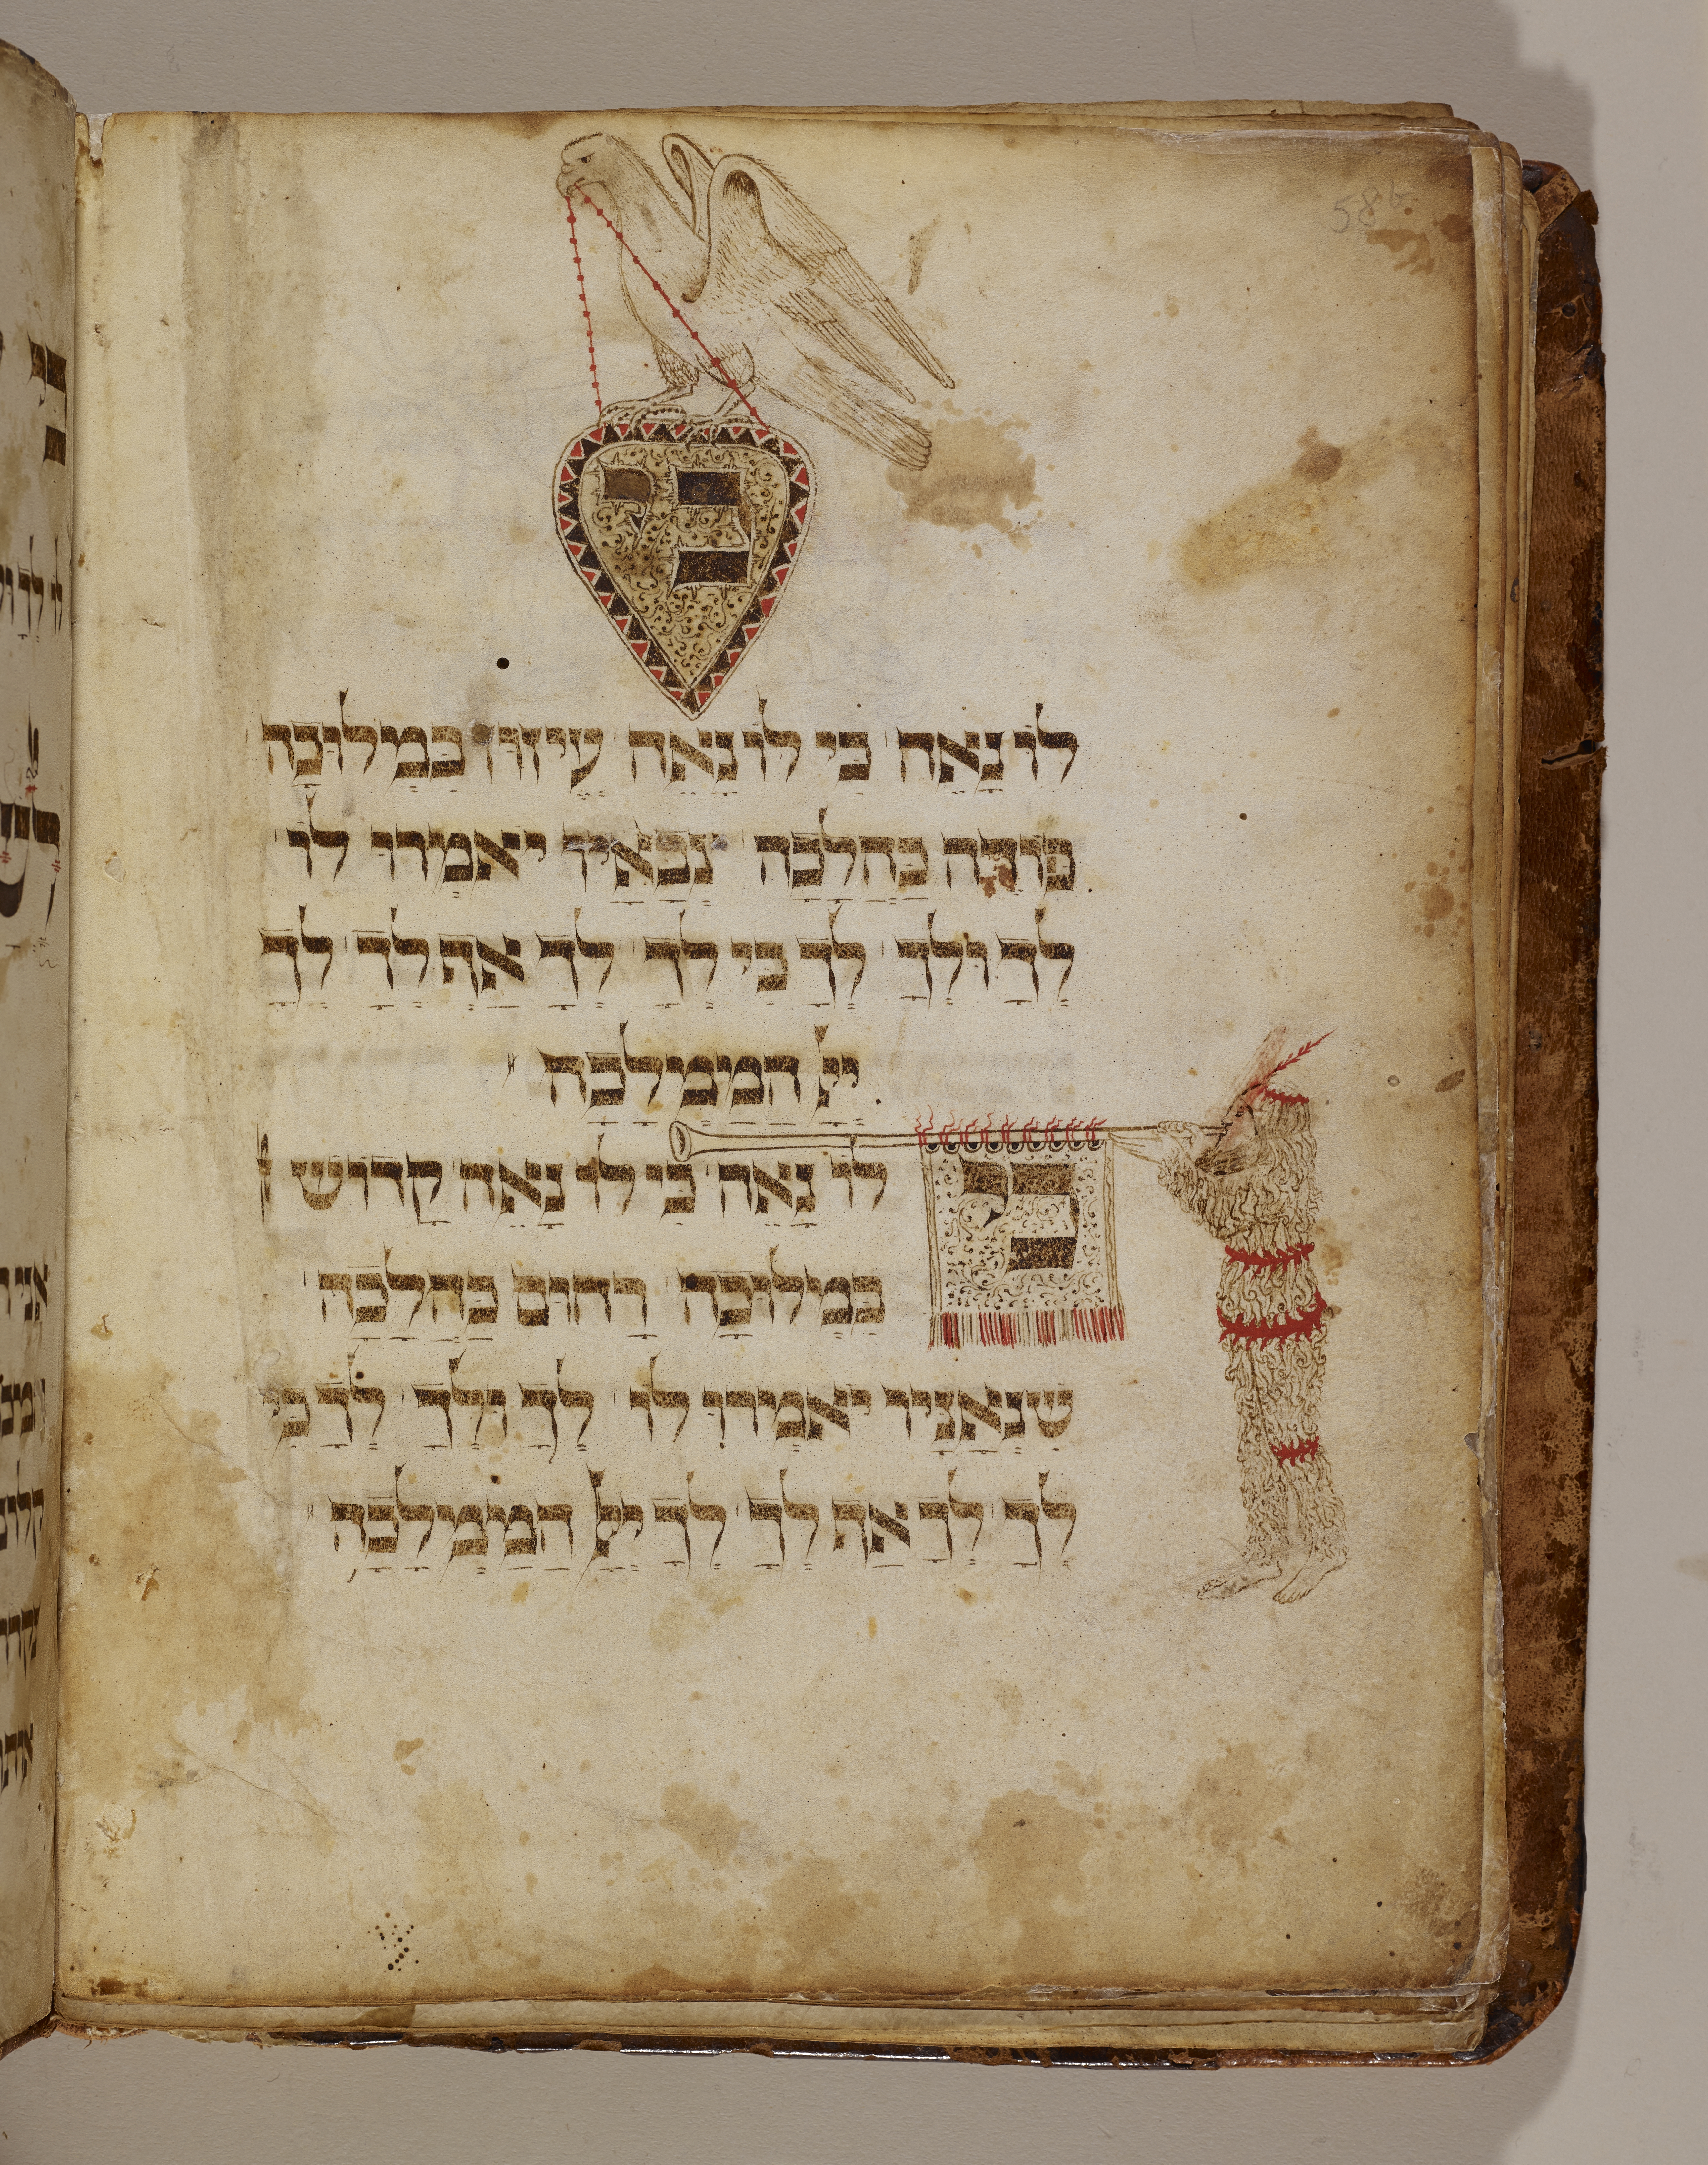 58b
כי
לו נאה כי לו נאה עיזוז במלוכה
פודה כהלכה צבאיו יאמרו לו
לך ולך לך כי לך לך אף לך לך
יי המימלכה
כי
לו נאה כי לו נאה קדוש
במילוכה רחום כהלכה
שנאניו יאמרו לו לך ולך לך כי
לך לך אף לך לך יי המימלכה